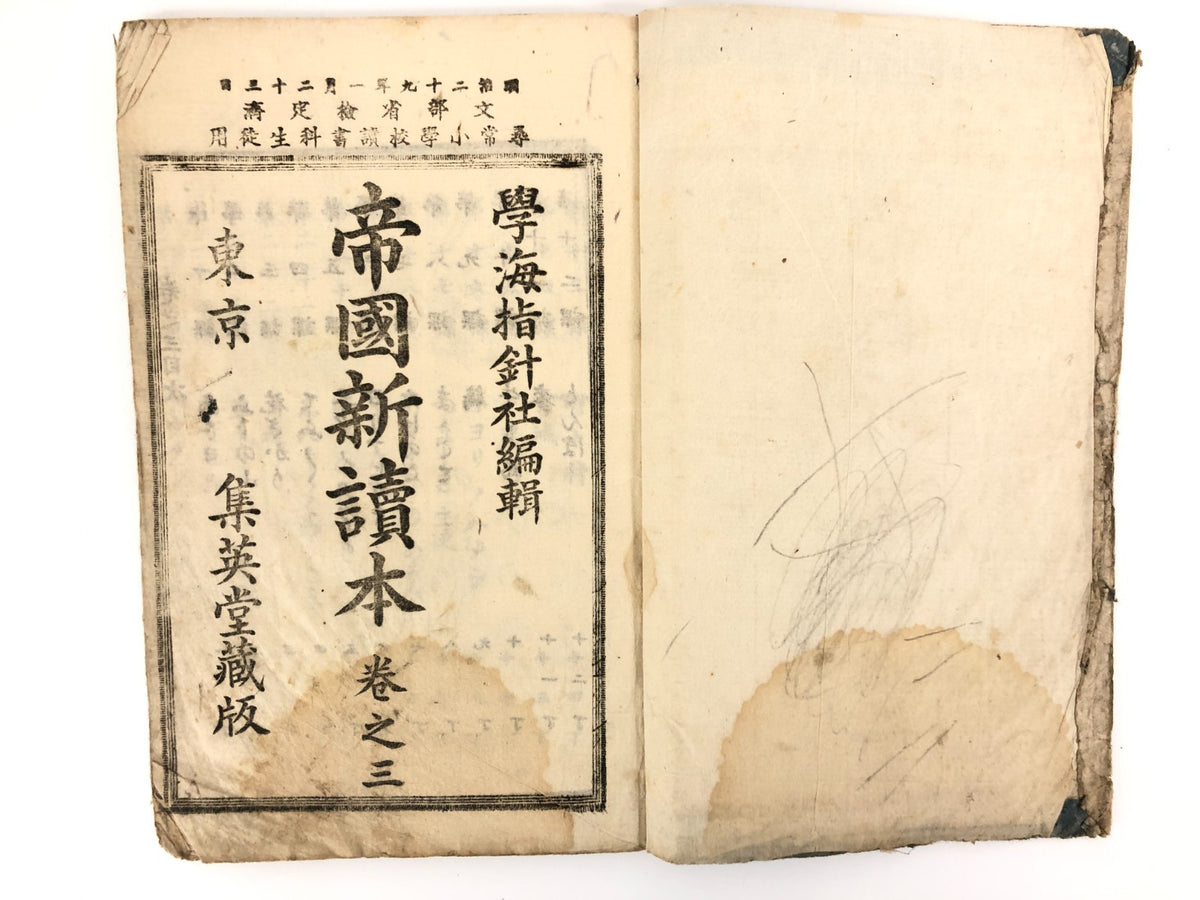 明治二十九年一月二十三日
文部省檢定濟
尋常小學校讀書科生徒用
學海指針社編輯
帝國新讀本 卷之三
東京 集英堂藏版